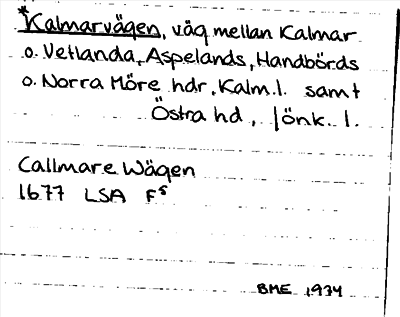 *Kalmarvägen, väg mellan Kalmar
o. Vetlanda, Aspelands, Handbörds
o. Norra Möre hdr, Kalm.l. samt
Östra hd, Jönk. l.
Callmare Wägen
1677 LSA F⁵
BME 1934